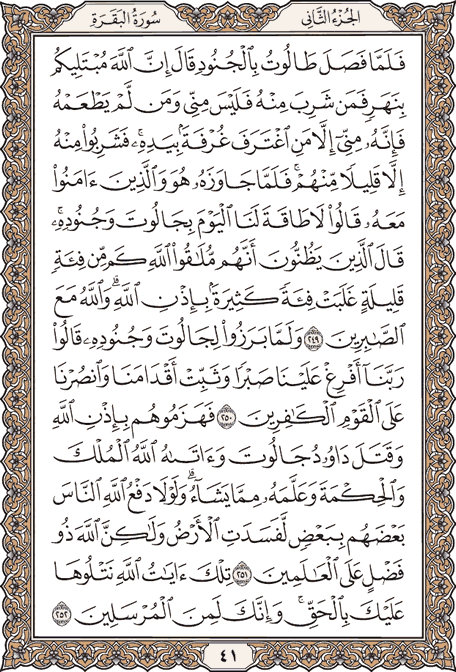 سُورَةُ البَقَرَةِ
الجُزءُ الثَّانِي
فَلَمَّا فَصَلَ طَالُوتُ بِٱلْجُنُودِ قَالَ إِنَّ ٱللَّهَ مُبْتَلِيكُم
بِنَهَرٍ فَمَن شَرِبَ مِنْهُ فَلَيْسَ مِنِّى وَمَن لَّمْ يَطْعَمْهُ
فَإِنَّهُۥ مِنِّىٓ إِلَّا مَنِ ٱغْتَرَفَ غُرْفَةًۢ بِيَدِهِۦۚ فَشَرِبُوا۟ مِنْهُ
إِلَّا قَلِيلًا مِّنْهُمْۚ فَلَمَّا جَاوَزَهُۥ هُوَ وَٱلَّذِينَ ءَامَنُوا۟
مَعَهُۥ قَالُوا۟ لَا طَاقَةَ لَنَا ٱلْيَوْمَ بِجَالُوتَ وَجُنُودِهِۦۚ
قَالَ ٱلَّذِينَ يَظُنُّونَ أَنَّهُم مُّلَٰقُوا۟ ٱللَّهِ كَم مِّن فِئَةٍ
قَلِيلَةٍ غَلَبَتْ فِئَةً كَثِيرَةًۢ بِإِذْنِ ٱللَّهِۗ وَٱللَّهُ مَعَ
ٱلصَّٰبِرِينَ ٢٤٩ وَلَمَّا بَرَزُوا۟ لِجَالُوتَ وَجُنُودِهِۦ قَالُوا۟
رَبَّنَآ أَفْرِغْ عَلَيْنَا صَبْرًا وَثَبِّتْ أَقْدَامَنَا وَٱنصُرْنَا
عَلَى ٱلْقَوْمِ ٱلْكَٰفِرِينَ ٢٥٠ فَهَزَمُوهُم بِإِذْنِ ٱللَّهِ
وَقَتَلَ دَاوُۥدُ جَالُوتَ وَءَاتَىٰهُ ٱللَّهُ ٱلْمُلْكَ
وَٱلْحِكْمَةَ وَعَلَّمَهُۥ مِمَّا يَشَآءُۗ وَلَوْلَا دَفْعُ ٱللَّهِ ٱلنَّاسَ
بَعْضَهُم بِبَعْضٍ لَّفَسَدَتِ ٱلْأَرْضُ وَلَٰكِنَّ ٱللَّهَ ذُو
فَضْلٍ عَلَى ٱلْعَٰلَمِينَ ٢٥١ تِلْكَ ءَايَٰتُ ٱللَّهِ نَتْلُوهَا
عَلَيْكَ بِٱلْحَقِّۚ وَإِنَّكَ لَمِنَ ٱلْمُرْسَلِينَ ٢٥٢
٤١